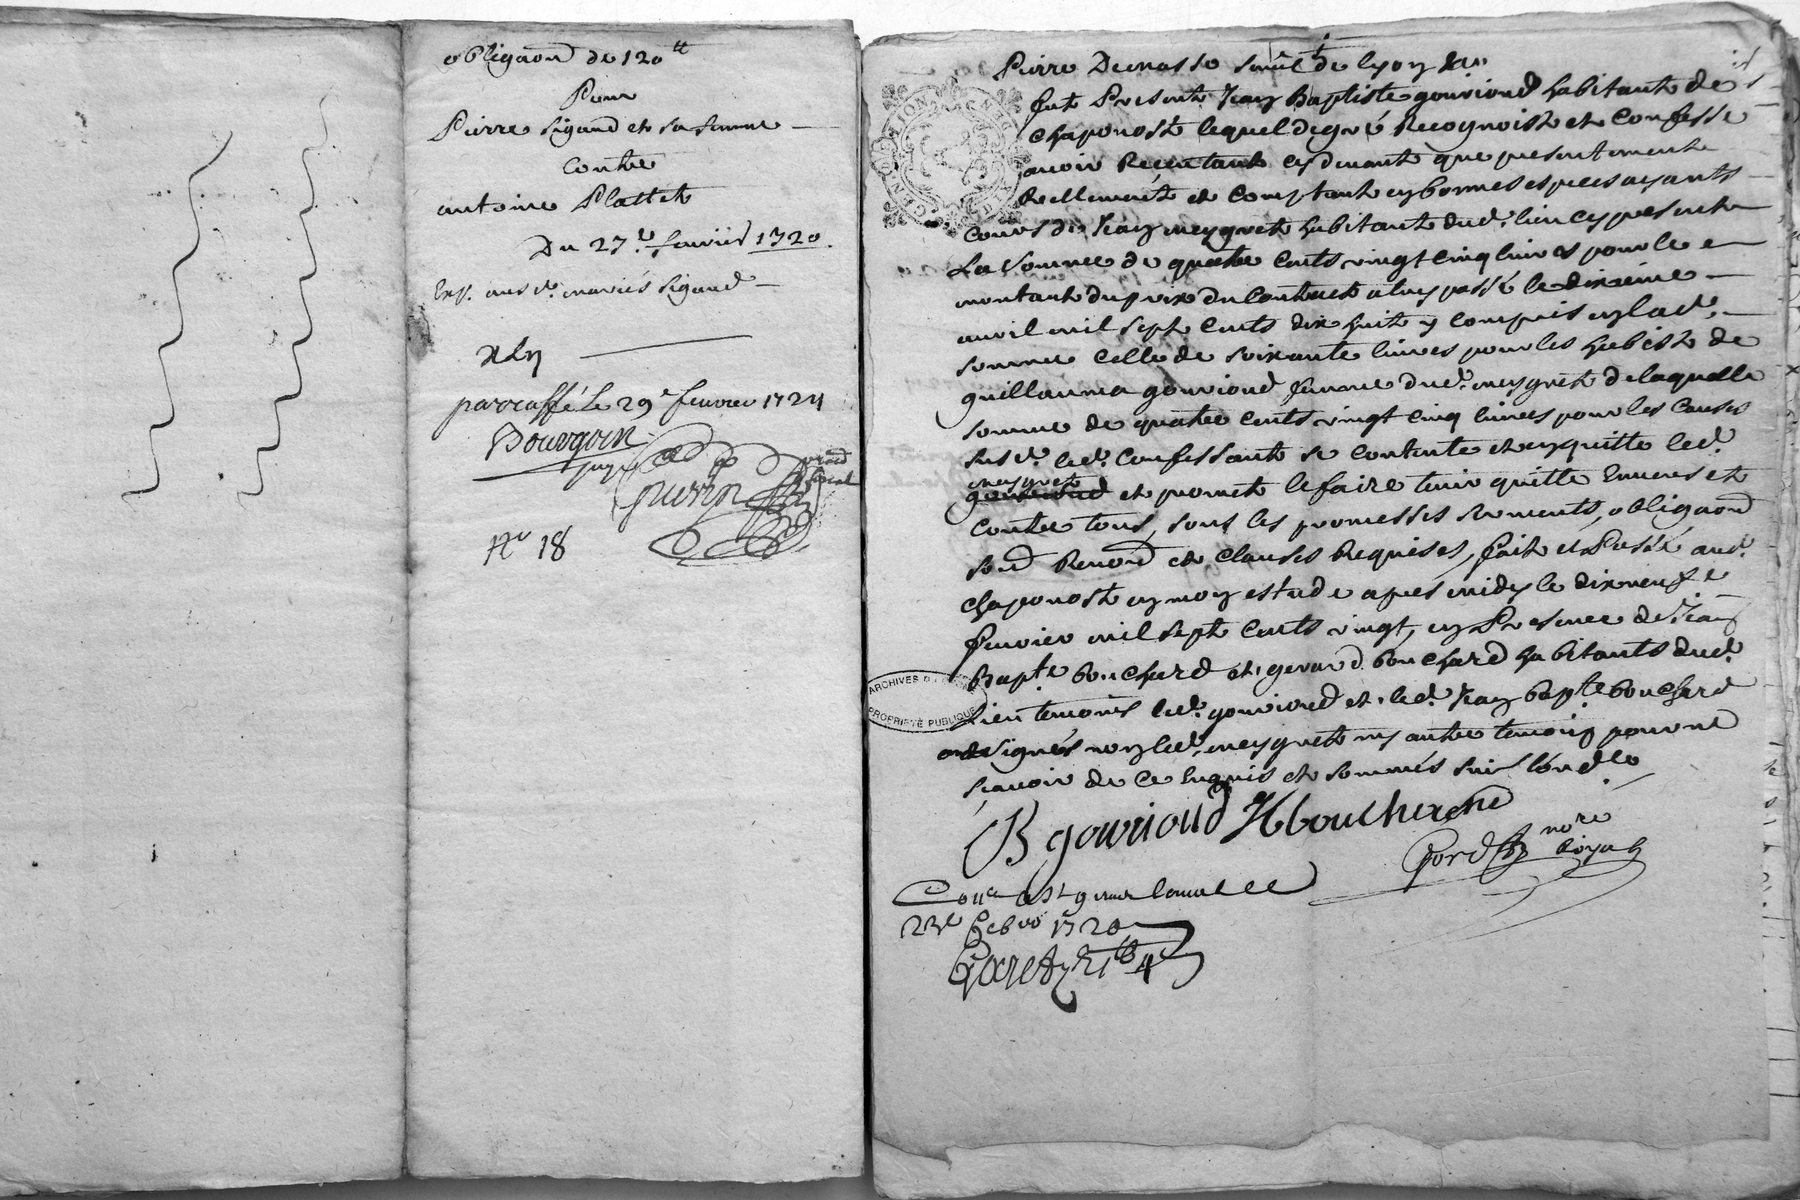 obligaon de 120 tt
Pour
Pierre Sigaud et sa femme
Contre
antoine Plattet
Du 27.e feuvrier 1720
Exp. aus d. mariés Sigaud
parraffé le 29e feuvrier 1724
Bourgoin
juge
guerin
No 18
Pierre Demasso seneel de lyon
fut Present Jean Baptiste gouvioud habitant de
chaponost lequel de gré Recognoist et Confesse
avoir Receu tant cy deuant que presentement
Reellement et Comptant en bonnes especes ayants
Cours de Jean meygnet habitant dud. lieu cy present
La somme de quatre cents vingt cinq livres pour le
montant du prix du Contract a luy passé le dixieme
avril mil sept cents dix huit y compris en lad.
somme celle de soixante livres pour les habist de
guillauma gouvioud femme dud. meygnet de laquelle
somme de quatre cents vingt cinq livres pour les Causes
susd. led. Confessant se contente et en quitte led.
meygnet
et promet le faire tenir quitte Envers et
Contre tous, sous les promesses serments, obligaon
soud Renond et clauses Requises, fait et Passé aud.
chaponost en mon estude apres midy le dix neufe
feuvrier mil sept cents vingt, en Presence de Jean
Bapte bouchard et gerard bouchard habitants dud.
Lieu temoins led. gouvioud et led. Jean Bapte bouchard
ont signés non led. meygnet ny autre temoin pour ne
sçavoir de ce Enquis et sommés suiv. l'ord.ce
B gouvioud JB bouchard
nore
Royal
Conlle a St genis laualle
23e febvo 1720
ARCHIVES
PROPRIETE PUBLIQUE